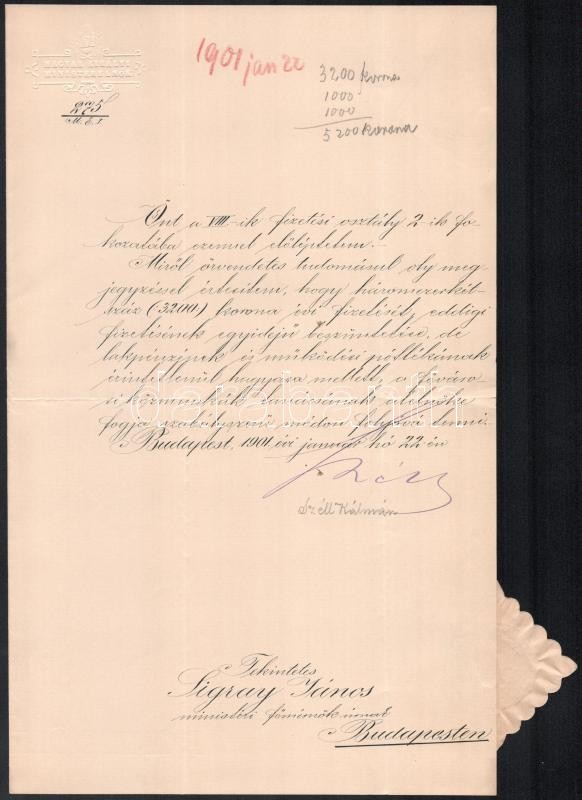 MAGYAR KIRÁLYI
MINISTERELNÖK
1901 jan 22
3200 korona
1000
1000
5200 korona
275
M.E.I.
Önt a VIII.-ik fizetési osztály 2-ik fo-
kozatába ezennel előléptetem.-
Miről örvendetes tudomásul oly meg-
jegyzéssel értesítem, hogy háromezerkét-
száz (:3200:) korona évi fizetését, eddigi
fizetésének egyidejű beszüntetése, de
lakpénzének és működési pótlékának
érintetlenül hagyása mellett, a főváro-
si közmunkák tanácsának elnöke
fogja szabályszerű módon folyóvá tenni.-
Budapest, 1901. évi január hó 22-én
Széll
Széll Kálmán
Tekintetes
Sigray János
ministeri főmérnök úrnak
Budapesten
darabanth